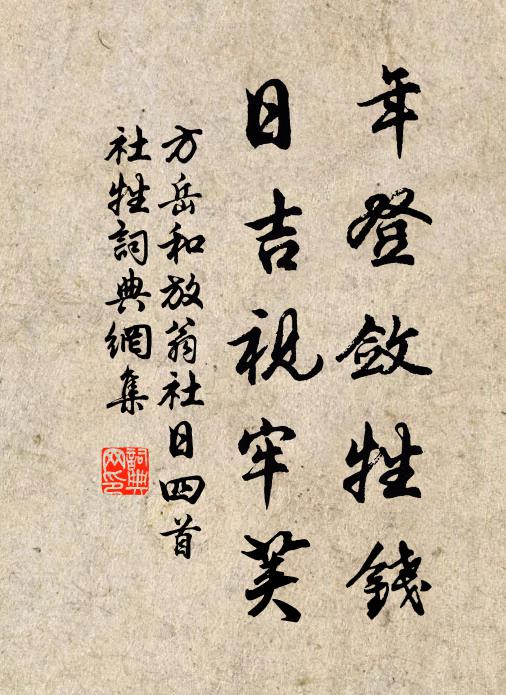 年登斂牲錢
日吉視牢筴
方岳和放翁社日四首
社牲詞典網集
詞典
网印